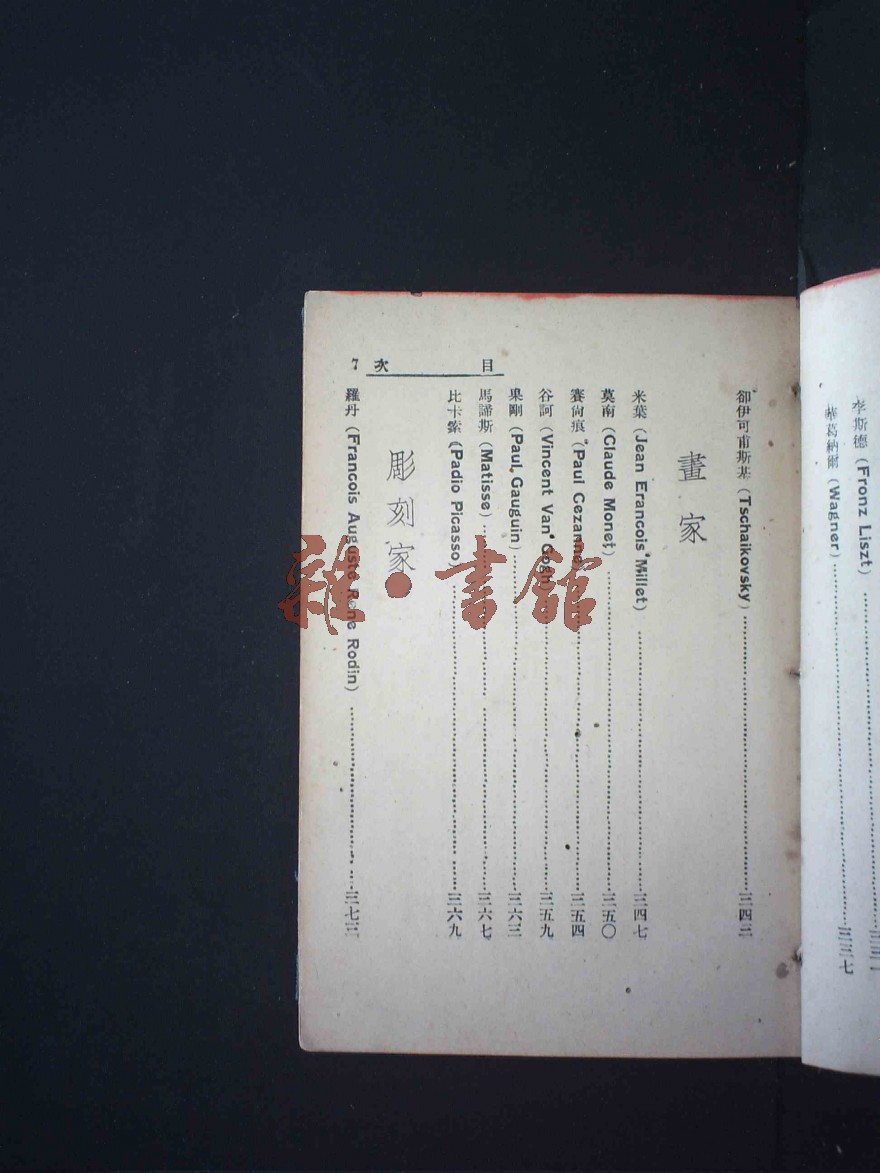 李斯德 (Fronz Liszt)
華葛納爾 (Wagner)……三三七
卻伊可甫斯基 (Tschaikovsky)……三四三
畫家
米葉 (Jean Erancois Millet)……三四七
莫南 (Claude Monet)……三五〇
賽尙痕 (Paul Cezanne)……三五四
谷訶 (Vincent Van Gogh)……三五九
果剛 (Paul Gauguin)……三六三
馬諦斯 (Matisse)……三六七
比卡索 (Padio Picasso)……三六九
彫刻家
羅丹 (Francois Auguste Rene Rodin)……三七三
目次 7
雜·書館